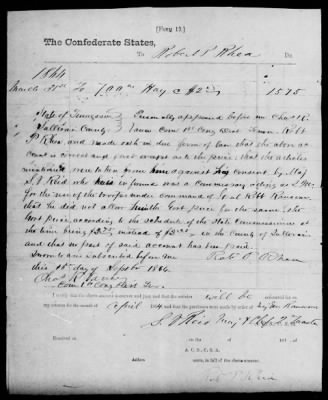 [Form 19.]
The Confederate States,
To Robert P Rhea Dr.
1864
March 31st To 700 lbs Hay @ $2 15.75
State of Tennessee Personally appeared before me Chas R.
Sullivan County Vance Com 1st Cong Dist Tenn Robt
P Rhea and made oath in due form of law that the above ac
count is correct and just except as to the price: that the articles
mentioned were taken from him against his consent by Maj
S. V. Reid who he is informed was a Commissary acting as
for the use of the troops under command of Genl Robt Ransom
that he did not allow him the Govt price for the same, the
Govt price according to the schedule of the State Commissioners at
the time being instead of in the County of Sullivan
and that no part of said account has been paid.
Sworn to and subscribed before me Robt P Rhea
this 15 day of Sept 1864.
Chas R. Vance
Com 1st Cong Dist Ten.
I certify that the above account is correct and just, and that the articles will be accounted for on
my return for the month of April 1864 and that the purchases were made by Maj Genl Ransom
S. V. Reid Maj & Chf
Received at the of 186
of
A. C. S., C. S. A.
dollars
cents, in full of the above account.
Robt P Rhea